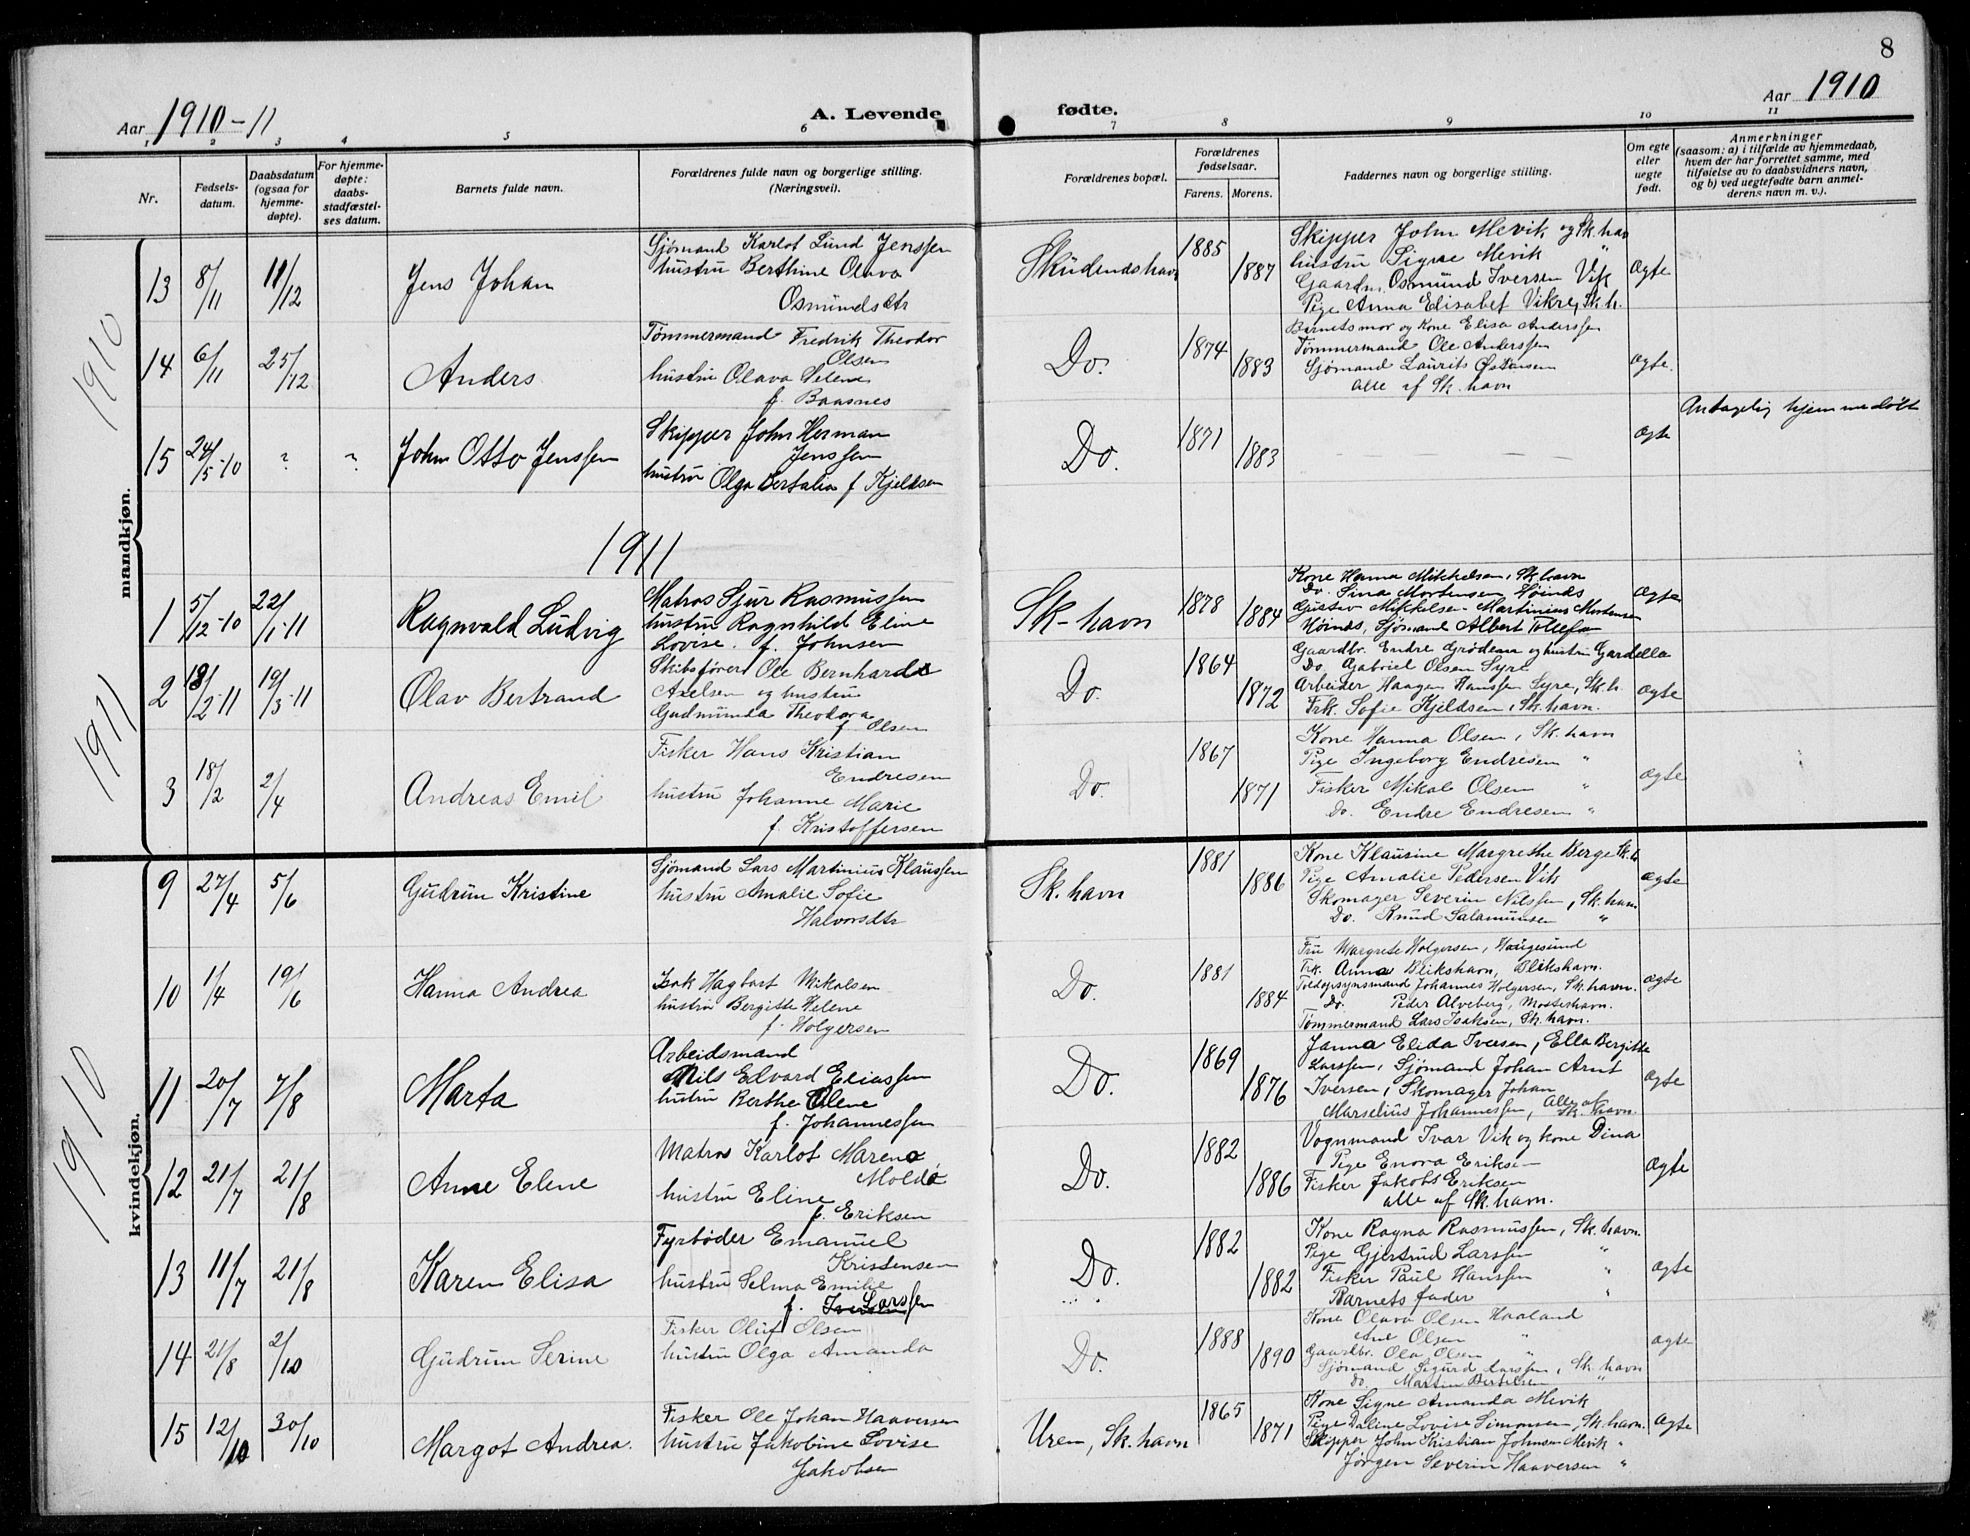 8
Aar 1910-11
A. Levende
fødte.
Aar 1910
1 2 3 4 5 6 7 8 9 10 11
Nr.
Fødsels-
datum.
Daabsdatum
(ogsaa for
hjemme-
døpte).
For hjemme-
døpte:
daabs-
stadfæstel-
ses datum.
Barnets fulde navn.
Forældrenes fulde navn og borgerlige stilling.
(Næringsvei).
Forældrenes bopæl.
Forældrenes
fødselsaar.
Farens. Morens.
Faddernes navn og borgerlige stilling.
Om egte
eller
uegte
født.
Anmerkninger
(saasom: a) i tilfælde av hjemmedaab,
hvem der har forrettet samme, med
tilføielse av to daabsvidners navn,
og b) ved uegtefødte barn anmel-
derens navn m. v.).
mandkjøn.
1910
13 8/11 11/12 Jens Johan
Sjømand Karlot Lund Jenssen
hustru Berthine Olava
Osmundsdtr
Skudenshavn 1885 1887
Skipper John Mevik og Sk. hav
hustru Signe Mevik "
Gaardm. Osmund Iversen Vik
Pige Anna Elisabet Vikre, Sk. h.
ægte
14 6/11 25/12 Anders
Tømmermand Fredrik Theodor
Olsen
hustru Olava Selene
f. Baasnes
Do. 1874 1883
Barnets mor og Kone Elisa Anderssen
Tømmermand Ole Anderssen
Sjømand Laurits Østensen
alle af Sk. havn
ægte.
15 24/5-10 ? ? John Otto Jenssen
Skipper John Herman
Jenssen
hustru Olga Bertalia f Kjeldsen
Do. 1871 1883
ægte
Antagelig hjemmedøbt
1911
1911
1 5/12-10 22/1-11 Ragnvald Ludvig
Matros Sjur Rasmussen
hustru Ragnhild Eline
Lovise. f. Johnsen
Sk-havn 1878 1884
Kone Hanna Mikkelsen, Sk. havn
Do. Sina Mortensen Høinds
Gustav Mikkelsen - Martinius Mortensen
Høinds, Sjømand Albert Tollefsen
Ægte
2 18/2-11 19/3-11 Olav Bertrand
Skibsfører Ole Bernhard
Axelsen og hustru
Gudmunda Theodora
f. Olsen
Do. 1864 1872
Gaardbr. Endre Grødem og hustru Gardella
Do. Gabriel Olsen Syre
Arbeider Haagen Hanssen Syre, Sk. h.
Frk. Sofie Kjeldsen, Sk. havn.
ægte
3 18/2 2/4 Andreas Emil
Fisker Hans Kristian
Endresen
hustru Johanne Marie
f. Kristoffersen
Do. 1867 1871
Kone Hanna Olsen, Sk. havn
Pige Ingeborg Endresen "
Fisker Mikal Olsen "
Do. Endre Endresen "
ægte
kvindekjøn.
1910
9 27/4 5/6 Gudrun Kristine
Sjømand Lars Martinius Klaussen
hustru Amalie Sofie
Halvorsdtr
Sk. havn 1881 1886
Kone Klausine Margrethe Berge Sk. h
Pige Amalie Pedersen Vik
Skomager Severin Nilssen, Sk. havn.
Do. Knud Salamunsen "
ægte
10 1/4 19/6 Hanna Andrea
Isak Hagbart Mikalsen
hustru Bergitte Helene
f. Holgersen
Do. 1881 1884
Fru Margrete Holgersen, Haugesund
Frk. Anna Blikshavn, Blikshavn.
Toldopsynsmand Johannes Holgersen, Sk. havn.
Do. Peder Alveberg, Mosterhavn.
Tømmermand Lars Isaksen, Sk. havn.
ægte
11 20/7 7/8 Marta
Arbeidsmand
Nils Edvard Eliassen
hustru Berthe Olene
f. Johannessen
Do. 1869 1876
Janna Elida Iversen, Ella Bergitte
Larssen, Sjømand Johan Arnt
Iversen, Skomager Johan
Marselius Johannessen, Alle af Sk. havn.
ægte
12 21/7 21/8 Anne Elene
Matros Karlot Mareno
Moldø
hustru Eline
f. Eriksen
Do. 1882 1886
Vognmand Ivar Vik og kone Dina
Pige Enora Eriksen
Fisker Jakob Eriksen
alle af Sk. havn.
ægte
13 11/7 21/8 Karen Elisa
Fyrbøder Emanuel
Kristensen
hustru Selma Emilie
f. Larssen
Do. 1882 1882
Kone Ragna Rasmussen, Sk. havn.
Pige Gjertrud Larssen "
Fisker Paul Hanssen "
Barnets fader "
ægte
14 21/8 2/10 Gudrun Serine
Fisker Oluf Olsen
hustru Olga Amanda
Do. 1888 1890
Kone Olava Olsen Haaland
Ane Olsen "
Gaardbr. Ola Olsen "
Sjømand Sigurd Larssen, Sk. havn
Do. Martin Bertelsen "
ægte
15 12/10 30/10 Margot Andrea.
Fisker Ole Johan Haaversen
hustru Jakobine Lovise
Jakobsen
Uren, Sk. havn 1865 1871
Kone Signe Amanda Mevik
Pige Daline Lovise Simonsen, Sk. havn.
Skipper John Kristian Johnsen Mevik "
Jørgen Severin Haaversen "
Ægte